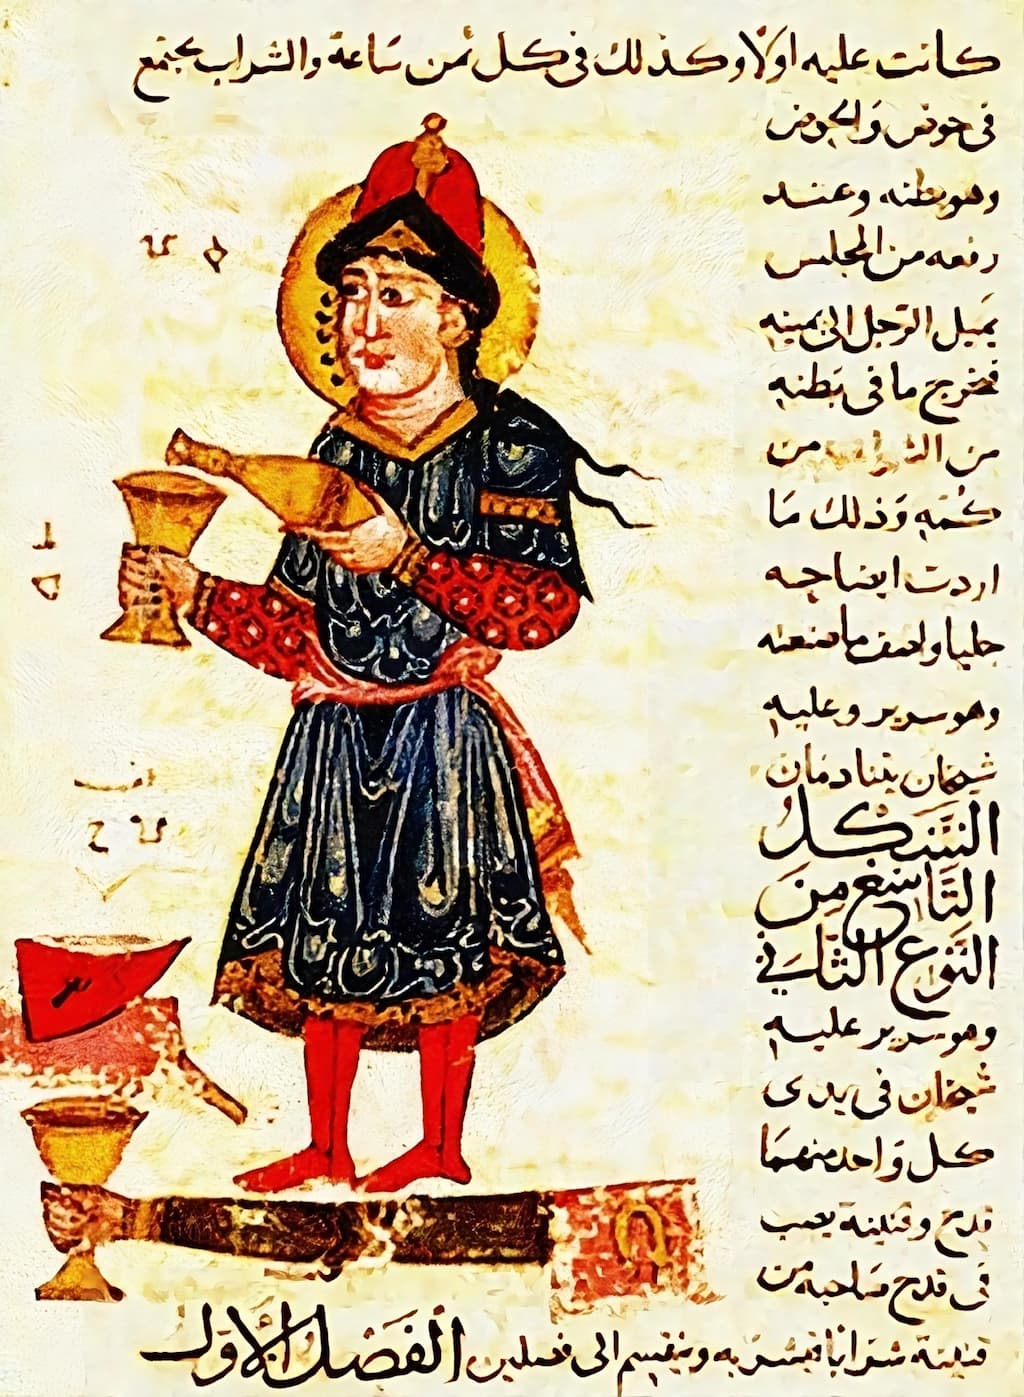 كانت عليه اولا وكذلك في كل ثمن ساعة والشراب يجتمع
في حوض والحوض
وهو بطنه وعند
رفعه من المجلس
يميل الرجل الى يمينه
فيخرج ما في بطنه
من الشراب من
كمه وذلك ما
اردت ايضاحه
جليا واصف ما صنعته
وهو سرير وعليه
شيخان يتنادمان
الشَّكل
التَّاسع مِنَ
النَّوع الثَّاني
وهو سرير عليه
شيخان في يدي
كل وَاحد منهما
قدح وقنينة يصب
في قدح صاحبه من
قنينة شرابا فيشربه وينقسم الى فصلين الفَصْل الأول